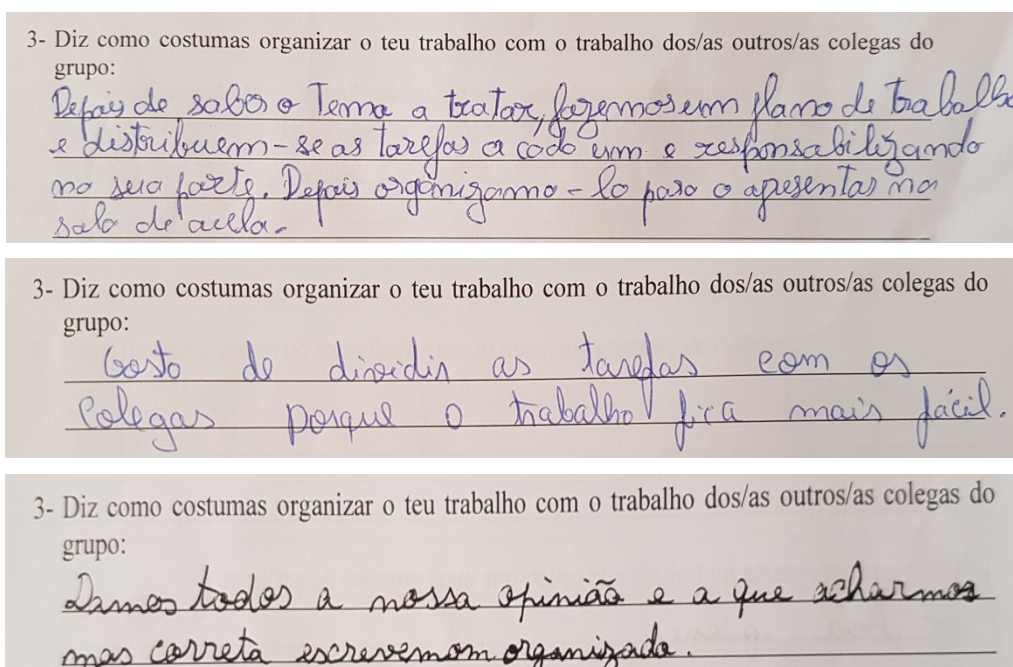 3- Diz como costumas organizar o teu trabalho com o trabalho dos/as outros/as colegas do
grupo:
Depois de saber o Tema a tratar, fazemos um plano de trabalho
e distribuem-se as tarefas a cada um e responsabilizando
na sua parte. Depois organizamo-lo para o apresentar na
sala de aula.
3- Diz como costumas organizar o teu trabalho com o trabalho dos/as outros/as colegas do
grupo:
Gosto de dividir as tarefas com os
colegas porque o trabalho fica mais fácil.
3- Diz como costumas organizar o teu trabalho com o trabalho dos/as outros/as colegas do
grupo:
Damos todos a nossa opinião e a que acharmos
mas correta escrevemom organizada.